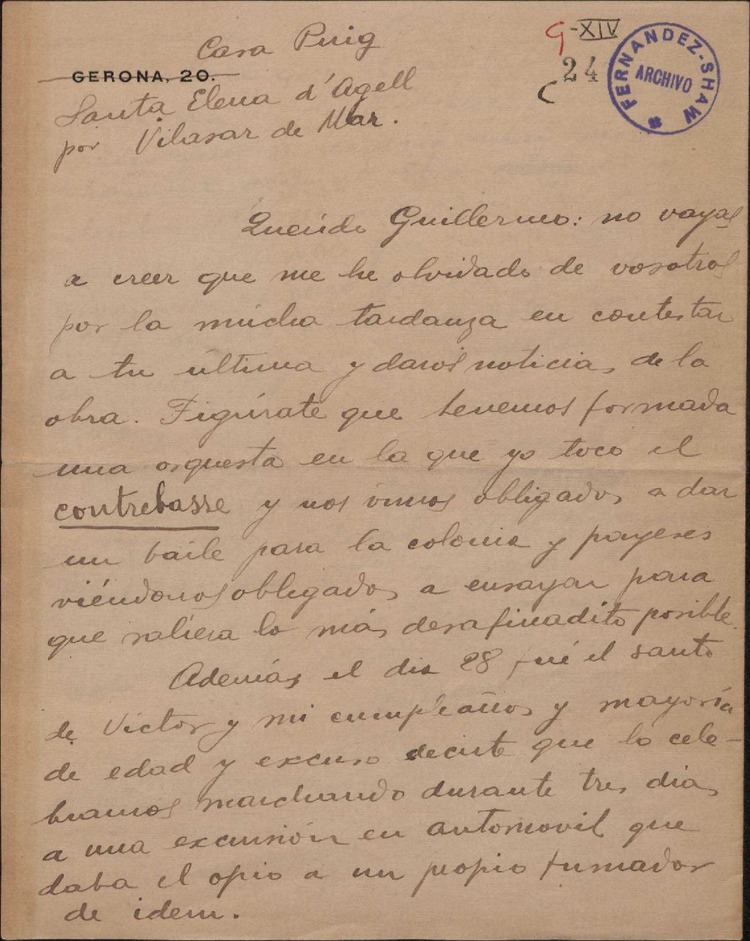 Casa Puig
GERONA, 20.
Santa Elena d'Agell
por Vilasar de Mar.
G-XIV
24
C
FERNANDEZ-SHAW
ARCHIVO
Querido Guillermo: no vayas
a creer que me he olvidado de vosotros
por la mucha tardanza en contestar
a tu última y daros noticias de la
obra. Figúrate que tenemos formada
una orquesta en la que yo toco el
contrebasse y nos vimos obligados a dar
un baile para la colonia y payeses
viéndonos obligados a ensayar para
que saliera lo más desafinadito posible.
Además el dia 28 fué el santo
de Victor y mi cumpleaños y mayoría
de edad y excuso decirte que lo cele-
bramos marchando durante tres dias
a una excursión en automovil que
daba el opio a un propio fumador
de idem.